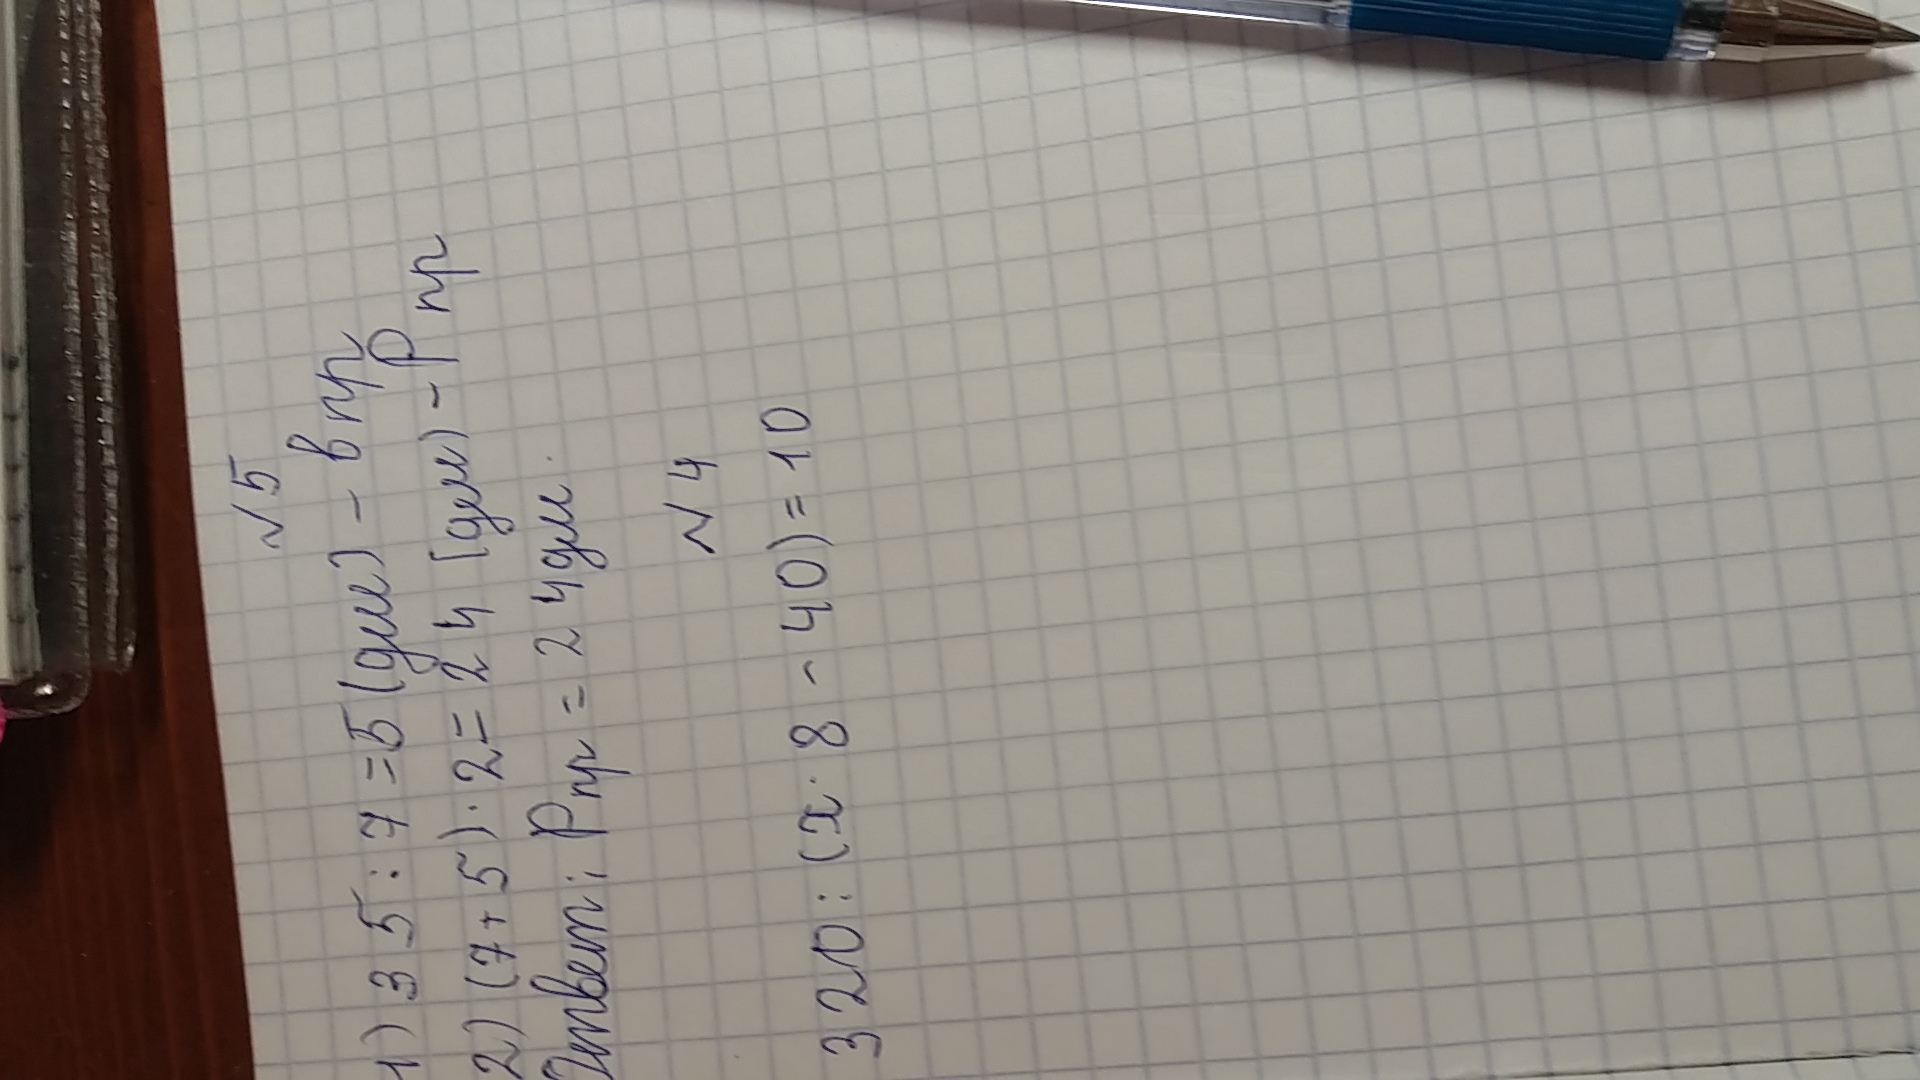 №5
1) 35 : 7 = 5 (дм) - в пр
2) (7+5) · 2 = 24 (дм) - P пр
Ответ: P пр = 24 дм.
№4
320 : (x · 8 - 40) = 10